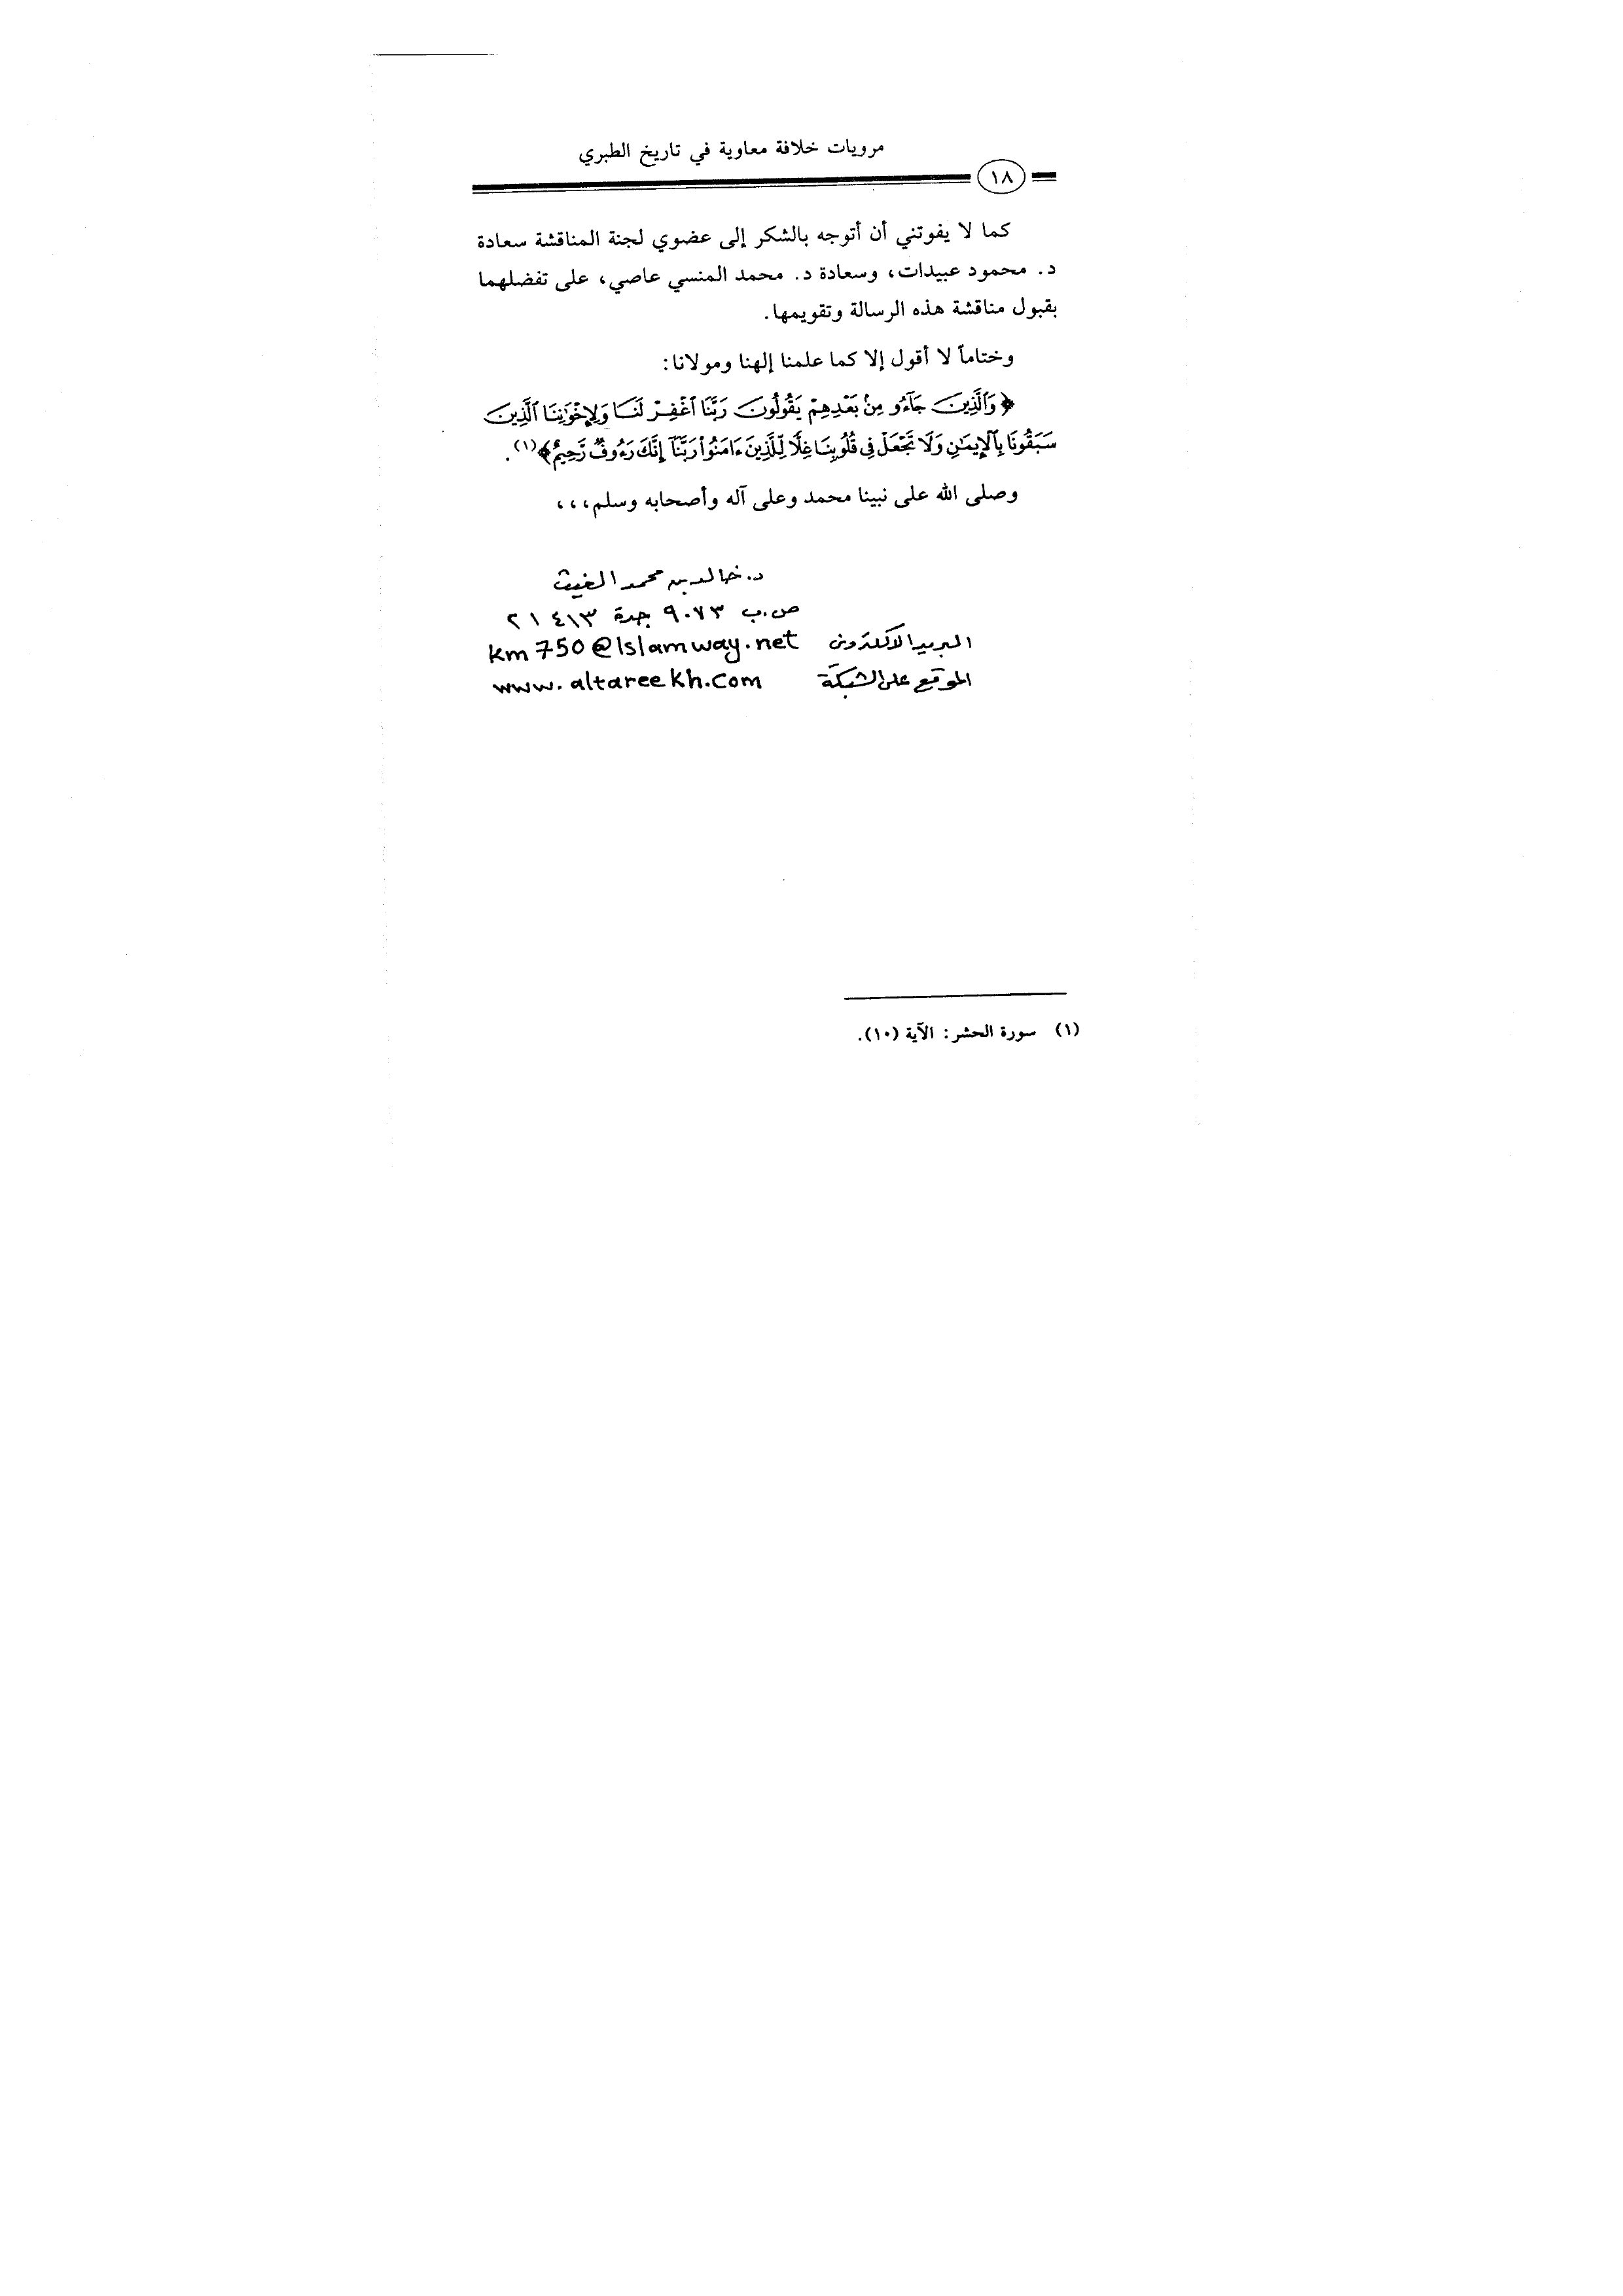 مرويات خلافة معاوية في تاريخ الطبري
١٨
كما لا يفوتني أن أتوجه بالشكر إلى عضوي لجنة المناقشة سعادة
د. محمود عبيدات، وسعادة د. محمد المنسي عاصي، على تفضلهما
بقبول مناقشة هذه الرسالة وتقويمها.
وختاماً لا أقول إلا كما علمنا إلهنا ومولانا:
﴿وَٱلَّذِينَ جَآءُو مِنۢ بَعْدِهِمْ يَقُولُونَ رَبَّنَا ٱغْفِرْ لَنَا وَلِإِخْوَٰنِنَا ٱلَّذِينَ
سَبَقُونَا بِٱلْإِيمَٰنِ وَلَا تَجْعَلْ فِى قُلُوبِنَا غِلًّا لِّلَّذِينَ ءَامَنُوا۟ رَبَّنَآ إِنَّكَ رَءُوفٌ رَّحِيمٌ﴾(١).
وصلى الله على نبينا محمد وعلى آله وأصحابه وسلم،،،
د. خالد بن محمد الغيث
ص.ب ٩٠٧٣ جدة ٢١٤١٣
البريد الالكتروني km750@Islamway.net
الموقع على الشبكة www.altareekh.com
(١) سورة الحشر: الآية (١٠).